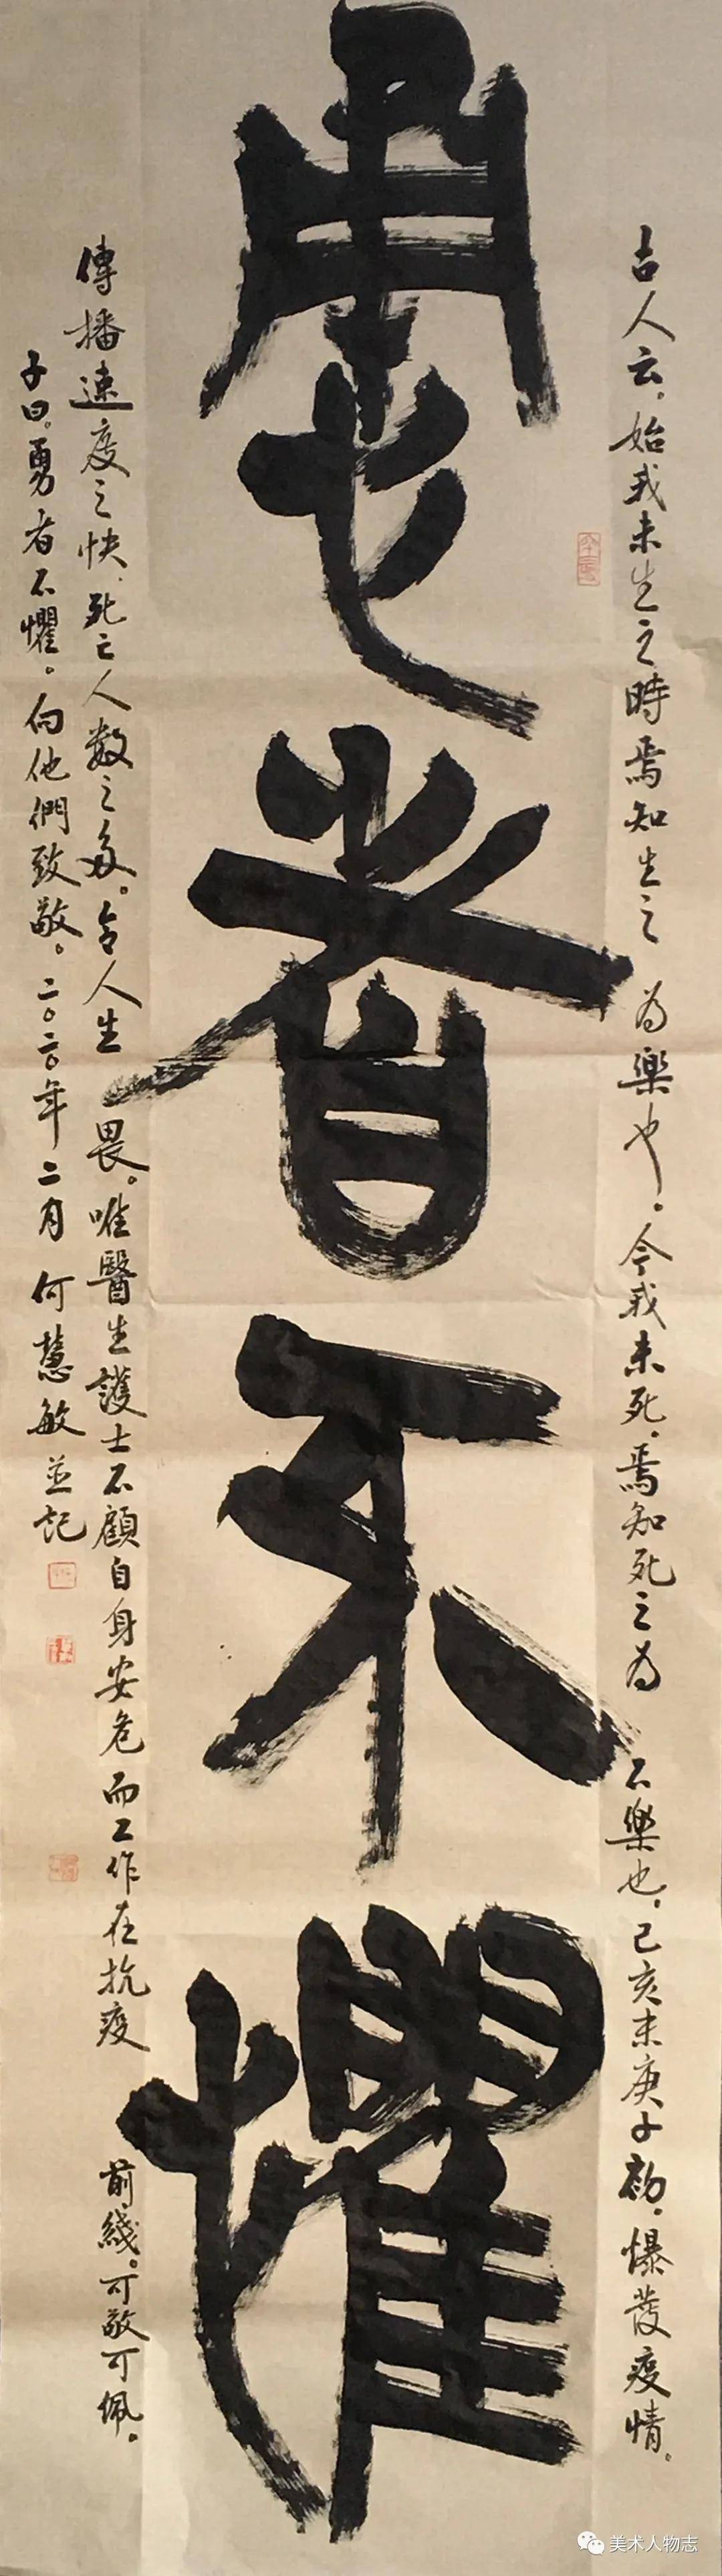 勇者不懼
古人云。始我未生之時焉知生之為樂也。今我未死。焉知死之為不樂也。己亥末庚子初。爆發疫情。
傳播速度之快。死亡人數之多。令人生畏。唯醫生護士不顧自身安危而工作在抗疫前綫。可敬可佩。
子曰。勇者不懼。向他們致敬。二〇二〇年二月何慧敏並記
美术人物志